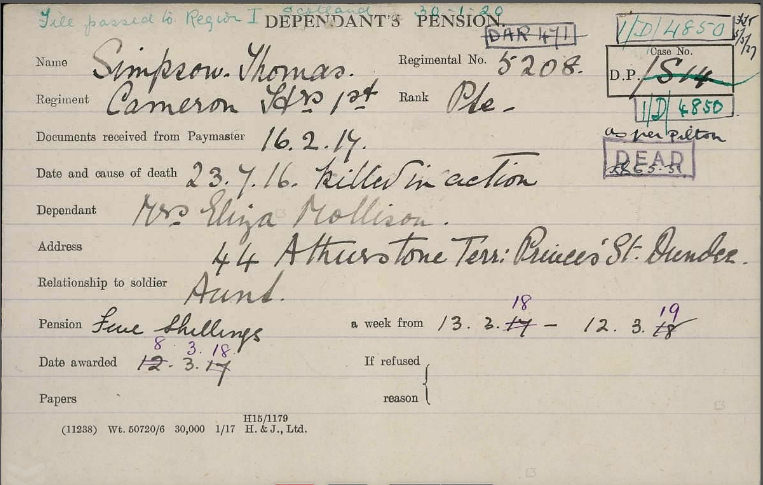 File passed to Region I Scotland 30-1-20
DEPENDANT'S PENSION.
DAR 4/1
1/D/4850
Name Simpson. Thomas.
Regimental No. 5208.
Case No.
D.P. /S14
1/D/4850
as per pilton
Regiment Cameron Hrs 1st
Rank Pte-
Documents received from Paymaster 16.2.17.
DEAD
Date and cause of death 23.7.16. Killed in action
Dependant Mrs Eliza Mollison.
Address 44 Athurstone Terr: Princes' St. Dundee.
Relationship to soldier Aunt.
Pension Five Shillings a week from 13. 3. 17 18 - 12. 3. 18 19
8. 3. 18.
Date awarded 12. 3. 17
If refused
Papers
reason
H15/1179
(11238) Wt. 50720/6 30,000 1/17 H. & J., Ltd.